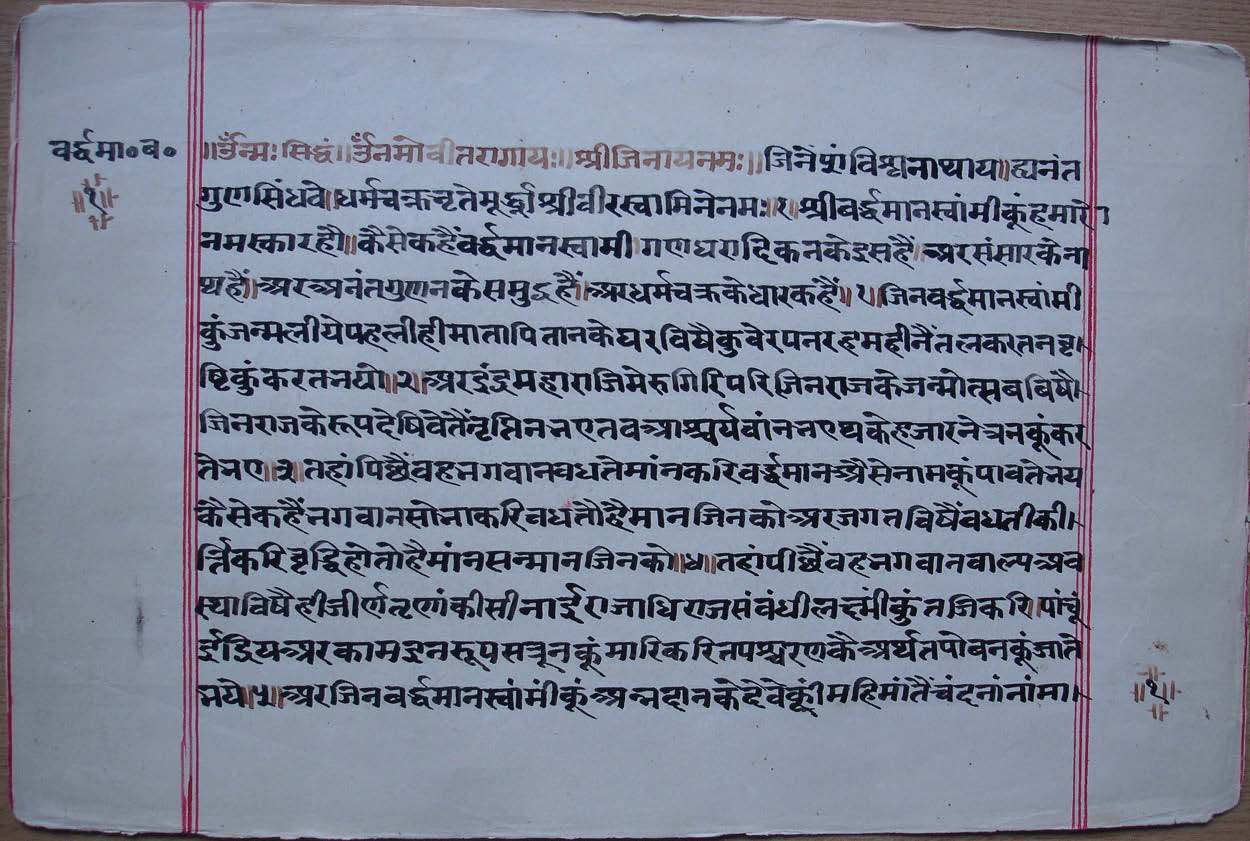 वर्द्धमा॰व॰ ॥ॐन्मः सिद्धं॥ॐनमोवीतरागायः॥श्रीजिनायनमः॥जिनेशंविश्वनाथाय॥ह्यनंत
॥१॥
गुणसिंधवे॥धर्मचक्रभृतेमूर्द्ध्नाश्रीवीरस्वामिनेनमः॥१॥श्रीवर्द्धमानस्वांमीकूंहमारो
नमस्कारहौ॥कैसेकहैंवर्द्धमानस्वामीगणधरादिकनकेइसहैं॥अरसंसारकेना
थहैं॥अरअनंतगुणनकेसमुद्रहैं॥अरधर्मचक्रकेधारकहैं॥१॥जिनवर्द्धमानस्वांमी
कुंजन्मलीयेपहलीहीमातापितानकेघरविषैकुवेरपनरहमहीनैंतलकरतनवृ।
ष्टिकुंकरतभयो॥२॥अरइंद्रमहाराजिमेरुगिरिपरिजिनराजकेजन्मोत्सवविषै।
जिनराजकेरूपदेषिवेतैंतृप्तिनभएतवआश्चर्यवांनभएथकेहजारनेत्रनकूंकर
तेभए॥३॥तहांपिछैंवहभगवानवधतेमांनकरिवर्द्धमानऔसेनामकूंपावतेभय
कैसेकहैंभगवानसोभाकरिवधतौहैमानजिनकोअरजगतविषैंवधतीकी।
र्त्तिकरिवृद्धिहोतोहैमांनसन्मानजिनको॥४॥तहांपीछैंवहभगवानवाल्पअव
स्थाविषैहीजीर्णतृणंकीसीनाईराजाधिराजसंवंधीलक्ष्मींकुंतजिकरि॥पांचूं
ईंद्रियअरकामइनरूपसत्रूनकूंमारिकरितपश्चरणकैअर्थतपोवनकूंजाते
भये॥५॥अरजिनवर्द्धमानस्वांमींकूंअन्नदानकेदेवेकूंमहिमांतैंचंदनांनांमा।
॥१॥